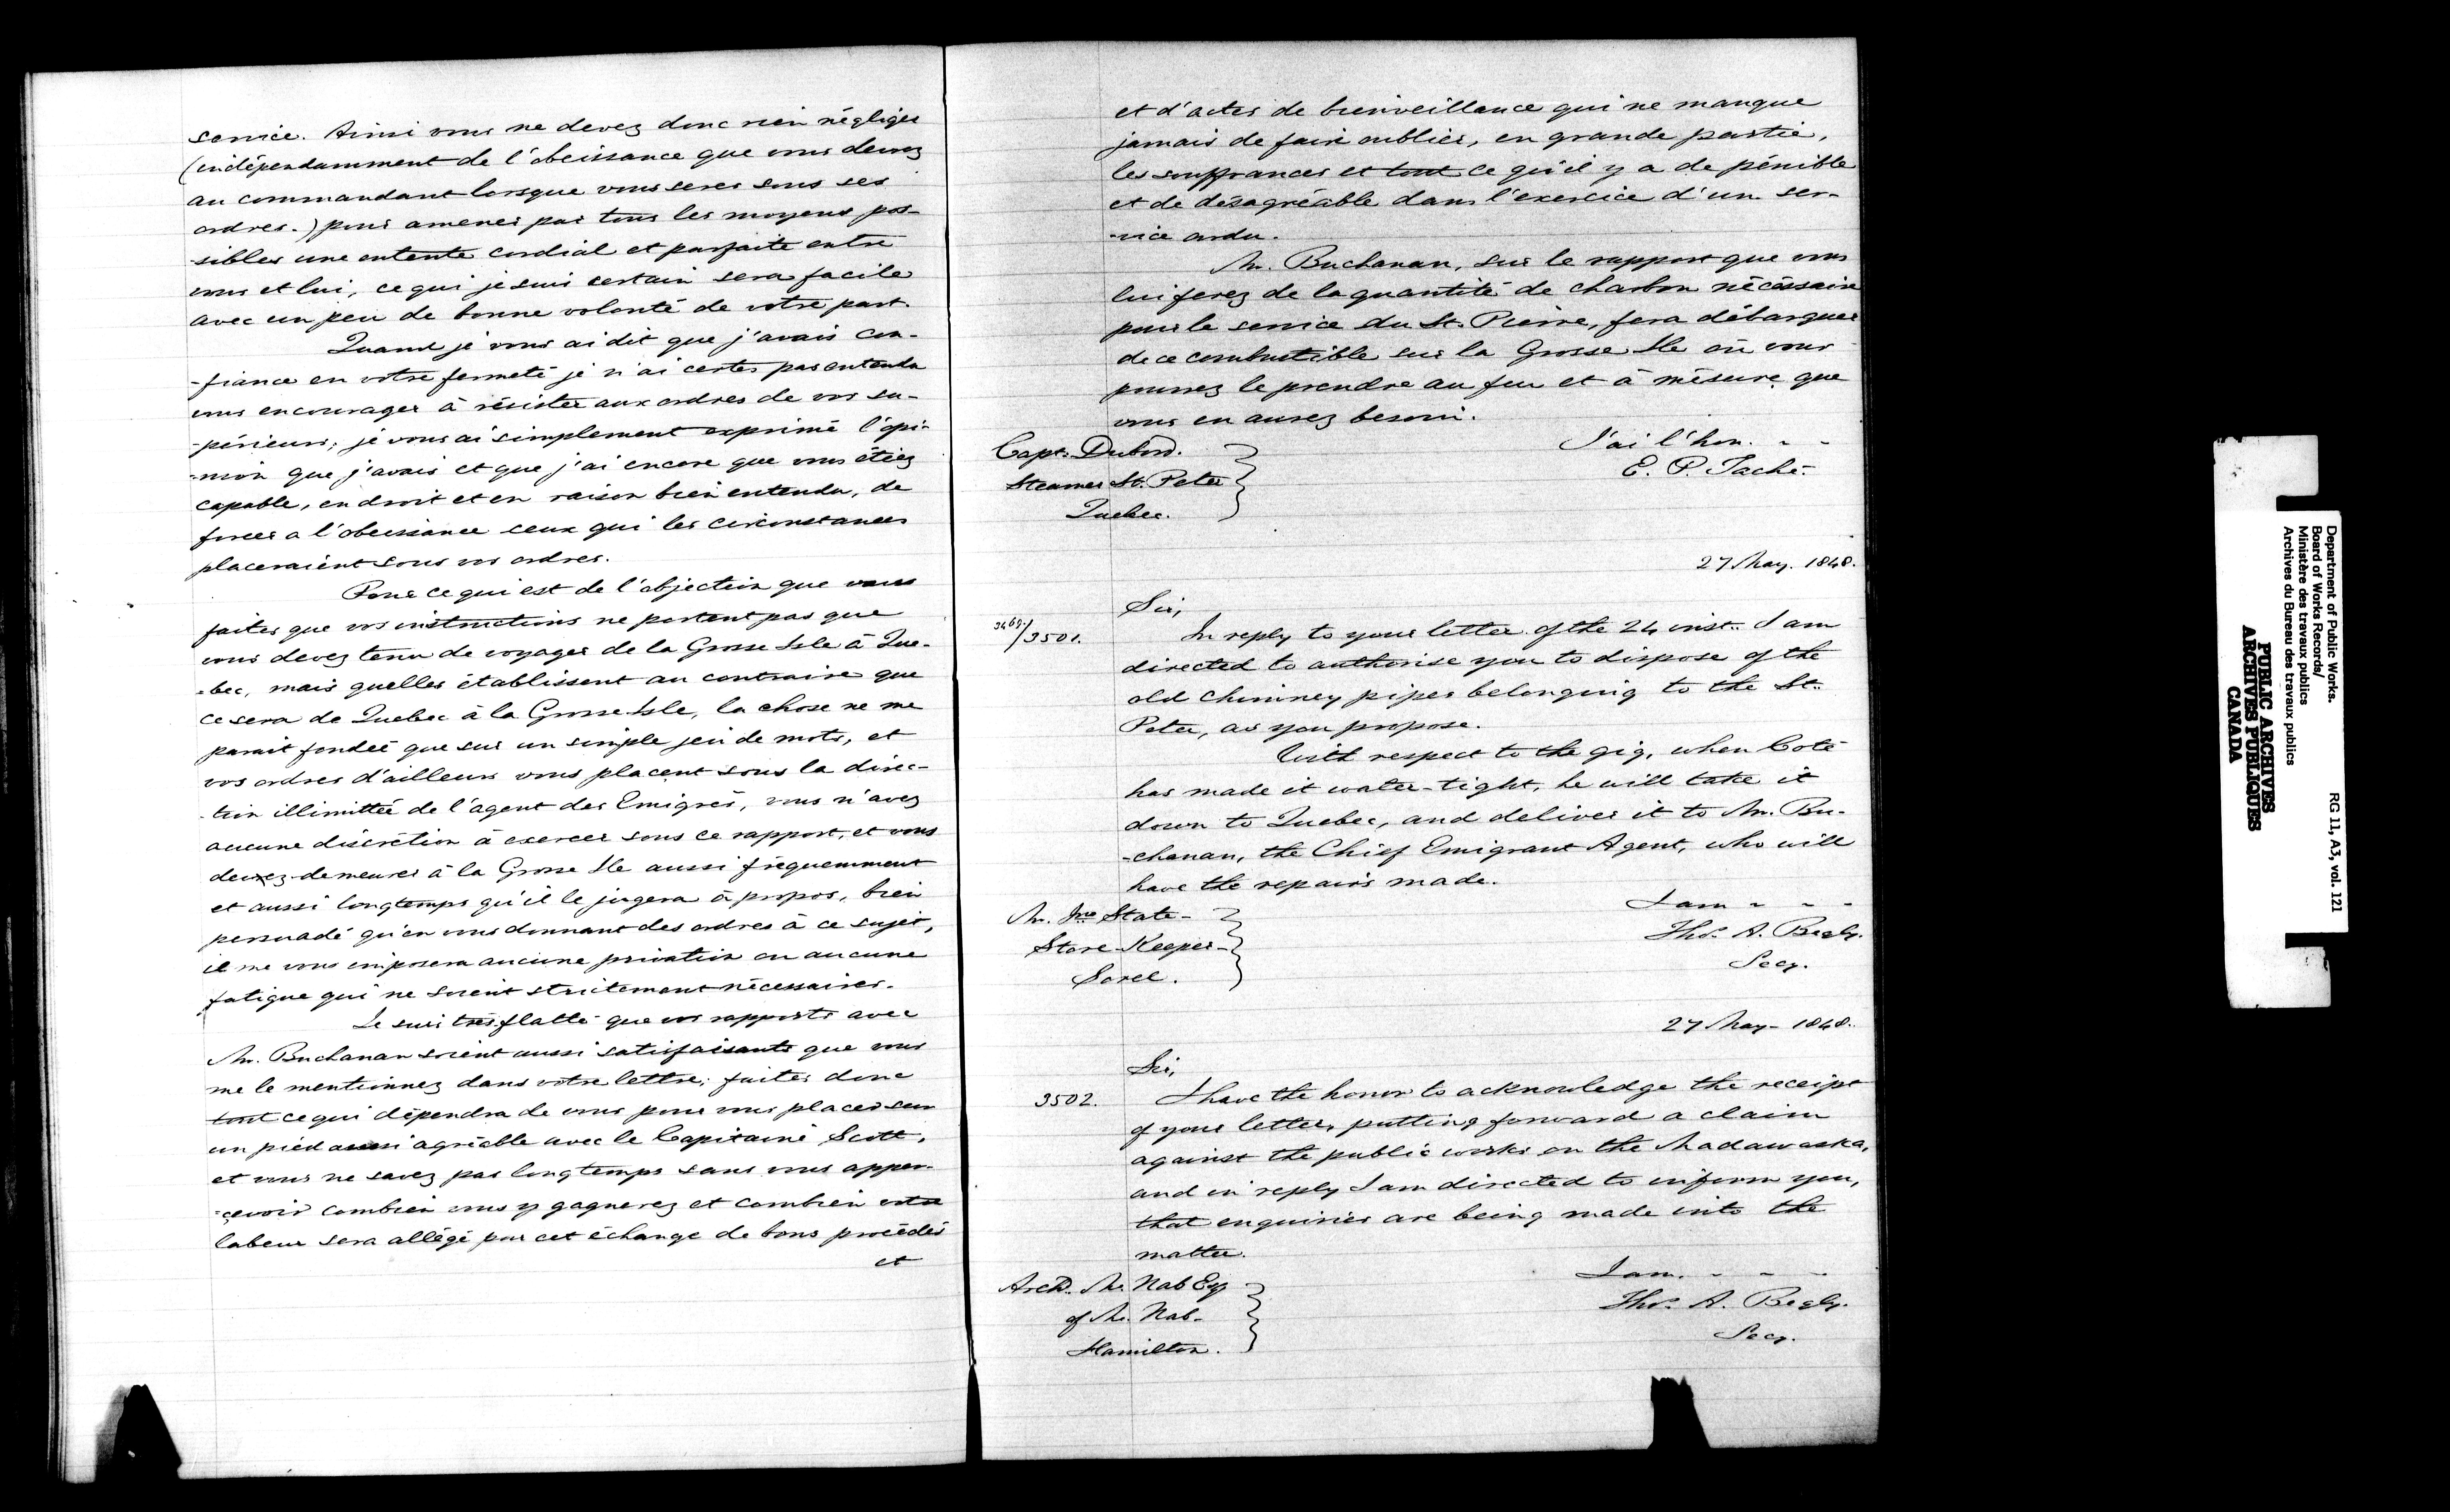 service. Ainsi vous ne devez donc rien négliger
(indépendamment de l'obeissance que vous devez
au commandant lorsque vous serez sous ses
ordres.) pour amener par tous les moyens pos-
-sibles une entente cordial et parfaite entre
vous et lui, ce qui je suis certain sera facile
avec un peu de bonne volonté de votre part.
Quand je vous ai dit que j'avais con-
-fiance en votre fermeté je n'ai certes pas entendu
vous encourager à résister aux ordres de vos su-
-périeurs; je vous ai simplement exprimé l'opi-
-nion que j'avais et que j'ai encore que vous étiez
capable, en droit et en raison bien entendu, de
forcer a l'obeissance ceux qui les circonstances
placeraient sous vos ordres.
Pour ce qui est de l'objection que vous
faites que vos instructions ne portent pas que
vous devez tenu de voyager de la Grosse Isle à Que-
-bec, mais quelles établissent au contraire que
ce sera de Quebec à la Grosse Isle, la chose ne me
parait fondée que sur un simple jeu de mots, et
vos ordres d'ailleurs vous placent sous la direc-
-tion illimittée de l'agent des Emigrés, vous n'avez
aucune discrétion à exercer sous ce rapport, et vous
devez demeurer à la Grosse Ile aussi fréquemment
et aussi longtemps qu'il le jugera à propos, bien
persuadé qu'en vous donnant des ordres à ce sujet,
il ne vous imposera aucune privation ou aucune
fatigue qui ne soient strictement nécessaires.
Je suis très flatté que vos rapports avec
Mr. Buchanan soient aussi satisfaisants que vous
me le mentionnez dans votre lettre; faites donc
tout ce qui dépendra de vous pour vous placer sur
un pied aussi agréable avec le Capitaine Scott,
et vous ne serez pas longtemps sans vous apper-
-cevoir combien vous y gagnerez et combien votre
labeur sera allégé par cet échange de bons procédés
et
et d'actes de bienveillance qui ne manque
jamais de faire oublier, en grande partie,
les souffrances et tout ce qu'il y a de pénible
et de désagréable dans l'exercice d'un ser-
-vice ardu.
Mr. Buchanan, sur le rapport que vous
lui ferez de la quantité de charbon nécessaire
pour le service du St. Pierre, fera débarquer
de ce combustible sur la Grosse Ile où vous
pourrez le prendre au feu et à mésure que
vous en aurez besoin.
J'ai l'hon. - -
E. P. Taché
Capt. Dubord.
Steamer St. Peter
Quebec.
27 May. 1848.
Sir,
3469/3501. In reply to your letter of the 24 inst. I am
directed to authorise you to dispose of the
old chimney pipes belonging to the St.
Peter, as you propose.
With respect to the gig, when Coté
has made it water-tight, he will take it
down to Quebec, and deliver it to Mr. Bu-
-chanan, the Chief Emigrant Agent, who will
have the repairs made.
I am - - -
Thos. A. Begly.
Secy.
Mr. Jno State-
Store-Keeper-
Sorel.
27 May - 1848.
Sir,
3502. I have the honor to acknowledge the receipt
of your letter, putting forward a claim
against the public works on the Madawaska,
and in reply I am directed to inform you,
that enquiries are being made into the
matter.
I am. - - -
Thos. A. Begly.
Secy.
Archd. Mc. Nab Esq
of Mc. Nab-
Hamilton.
Department of Public Works.
Board of Works Records/
Ministère des travaux publics
Archives du Bureau des travaux publics
RG 11, A3, vol. 121
PUBLIC ARCHIVES
ARCHIVES PUBLIQUES
CANADA